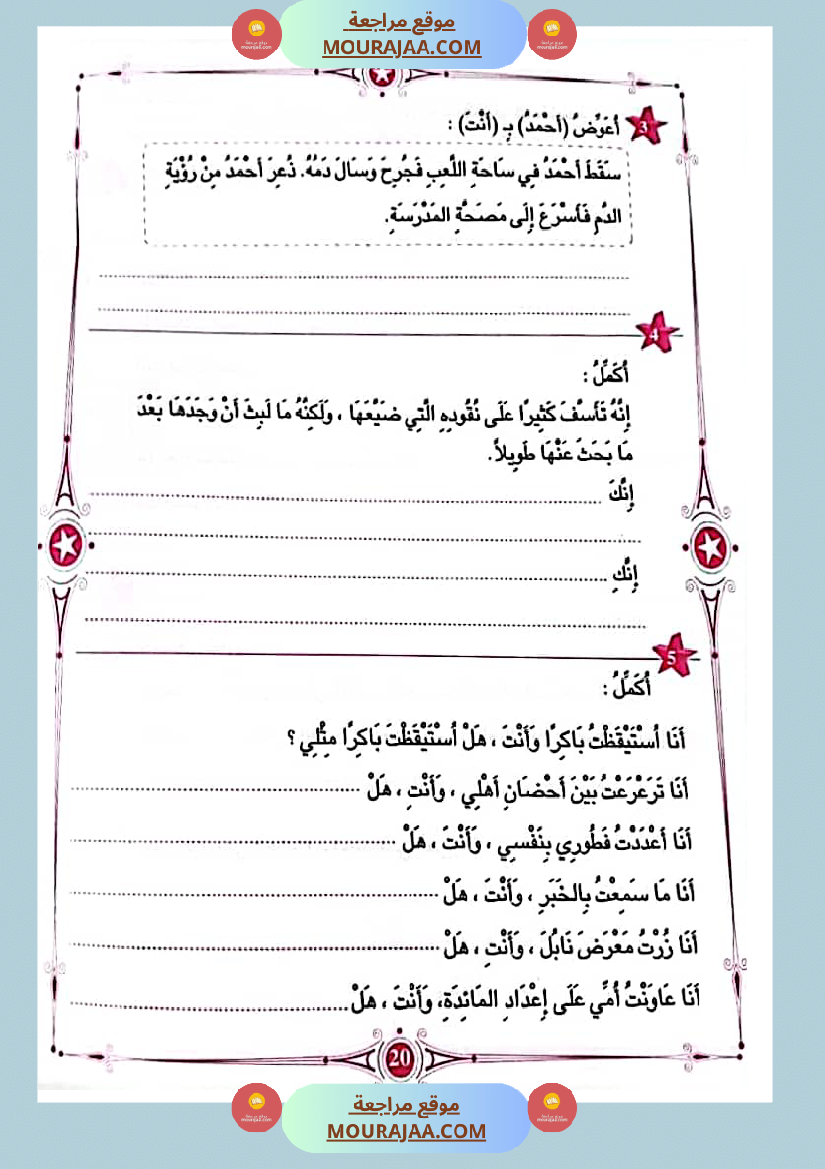 موقع مراجعة
MOURAJAA.COM
3
أُعَوِّضُ (أَحْمَدُ) بِـ (أَنْتَ) :
سَقَطَ أَحْمَدُ فِي سَاحَةِ اللَّعِبِ فَجُرِحَ وَسَالَ دَمُهُ. ذُعِرَ أَحْمَدُ مِنْ رُؤْيَةِ
الدَّمِ فَأَسْرَعَ إِلَى مَصَحَّةِ المَدْرَسَةِ.
4
أُكَمِّلُ :
إِنَّهُ تَأَسَّفَ كَثِيرًا عَلَى نُقُودِهِ الَّتِي ضَيَّعَهَا ، وَلَكِنَّهُ مَا لَبِثَ أَنْ وَجَدَهَا بَعْدَ
مَا بَحَثَ عَنْهَا طَوِيلاً.
إِنَّكَ
إِنَّكِ
5
أُكَمِّلُ :
أَنَا اُسْتَيْقَظْتُ بَاكِرًا وَأَنْتَ ، هَلْ اُسْتَيْقَظْتَ بَاكِرًا مِثْلِي ؟
أَنَا تَرَعْرَعْتُ بَيْنَ أَحْضَانِ أَهْلِي ، وَأَنْتِ ، هَلْ
أَنَا أَعْدَدْتُ فَطُورِي بِنَفْسِي ، وَأَنْتَ ، هَلْ
أَنَا مَا سَمِعْتُ بِالخَبَرِ ، وَأَنْتَ ، هَلْ
أَنَا زُرْتُ مَعْرَضَ نَابُلَ ، وَأَنْتِ ، هَلْ
أَنَا عَاوَنْتُ أُمِّي عَلَى إِعْدَادِ المَائِدَةِ، وَأَنْتَ ، هَلْ
20
موقع مراجعة
MOURAJAA.COM